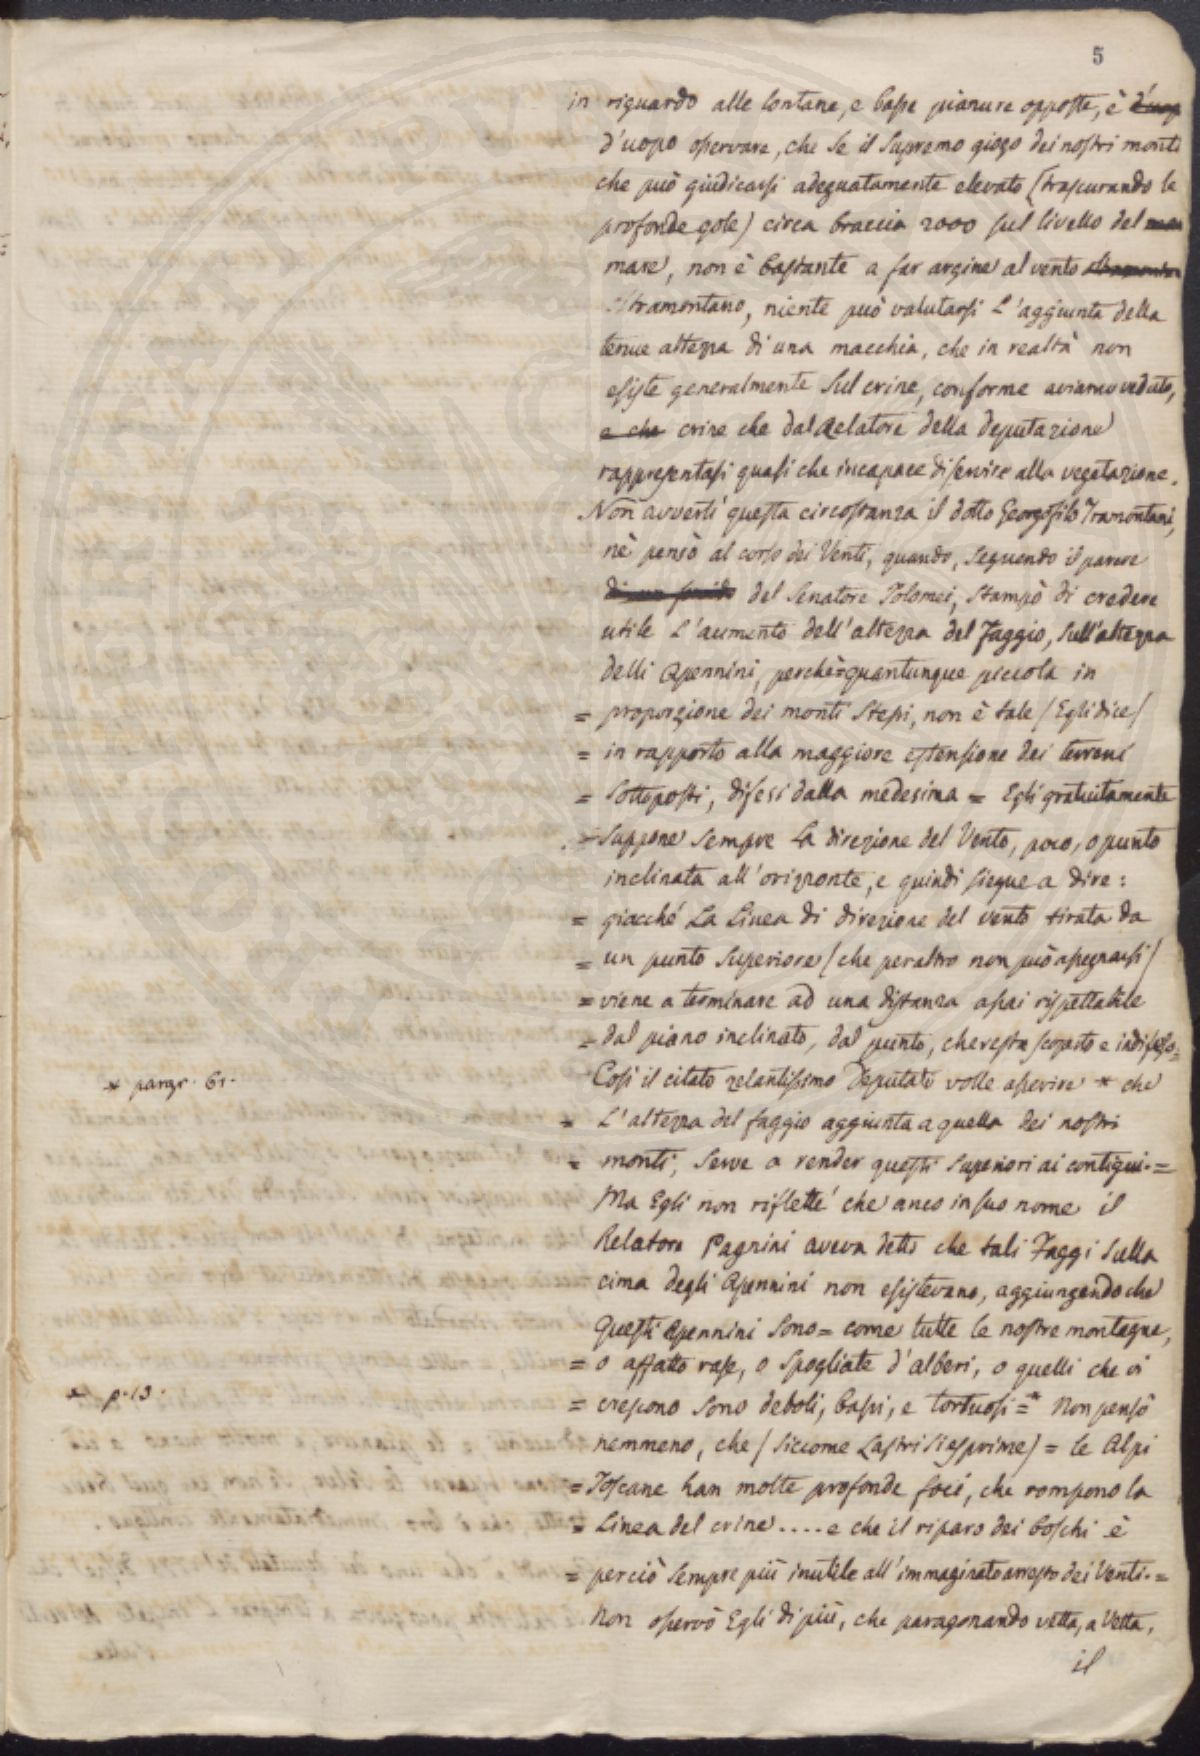 5
in riguardo alle lontane, e basse pianure opposte, è d'uop
d'uopo osservare, che se il supremo giogo dei nostri monti
che può giudicarsi adeguatamente elevato (trascurando le
profonde gole) circa braccia 2000 sul livello del
mare, non è bastante a far argine al vento
oltramontano, niente può valutarsi l'aggiunta della
tenue altezza di una macchia, che in realtà non
esiste generalmente sul crine, conforme aviamo veduto,
e che crine che dal Relatore della deputazione
rappresentasi quasi che incapace di servire alla vegetazione.
Non avvertì questa circostanza il dotto Georgofilo Tramontani,
nè pensò al corso dei Venti, quando, seguendo il parere
di un del Senatore Tolomei, stampò di credere
utile l'aumento dell'altezza del Faggio, sull'altezza
delli Apennini, perchè = quantunque piccola in
= proporzione dei monti stessi, non è tale (Egli dice)
= in rapporto alla maggiore estensione dei terreni
= sottoposti, difesi dalla medesima = Egli gratuitamente
= suppone sempre la direzione del Vento, poco, o punto
inclinata all'orizzonte, e quindi siegue a dire:
= giacché La Linea di direzione del vento tirata da
= un punto superiore (che peraltro non può assegnarsi)
= viene a terminare ad una distanza assai rispettabile
= dal piano inclinato, dal punto, che resta scoperto e indifeso =
* paragr. 61.
Così il citato zelantissimo Deputato volle asserire * che
= L'altezza del faggio aggiunta a quella dei nostri
= monti, serve a render questi superiori ai contigui. =
Ma Egli non riflettè che anco in suo nome il
Relatore Pagnini aveva detto che tali Faggi sulla
cima degli Apennini non esistevano, aggiungendo che
questi Apennini sono = come tutte le nostre montagne,
= o affatto rase, o spogliate d'alberi, o quelli che vi
* p. 13.
= crescono sono deboli, bassi, e tortuosi = * Non pensò
nemmeno, che (siccome Lastri si esprime) = le Alpi
= Toscane han molte profonde foci, che rompono la
= Linea del crine .... e che il riparo dei boschi è
= perciò sempre più inutile all'immaginato arresto dei Venti. =
Non osservò Egli di più, che paragonando vetta, a Vetta,
il